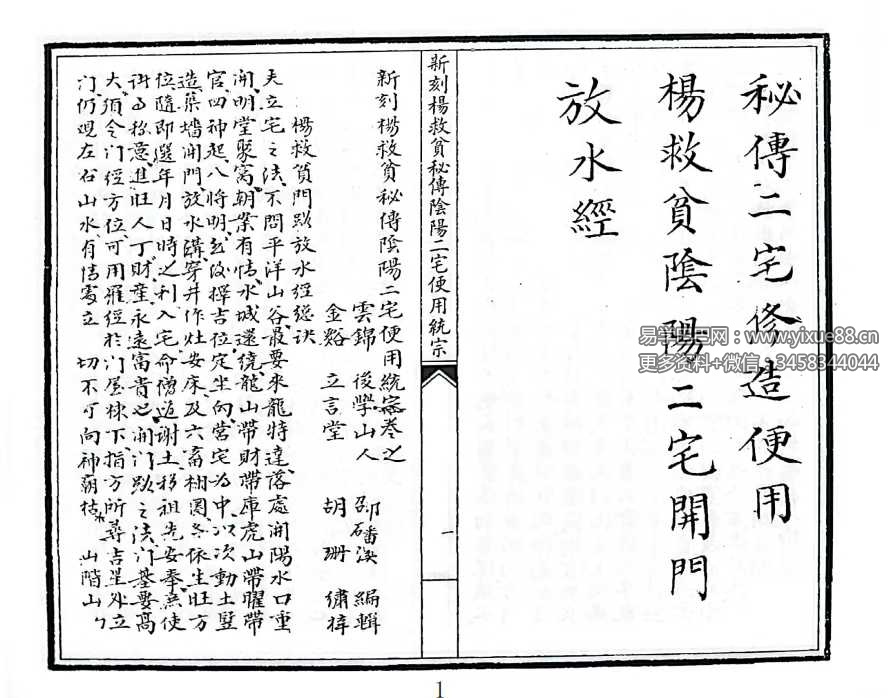 秘傳二宅修造便用
楊救貧陰陽二宅開門
放水經
新刻楊救貧秘傳陰陽二宅便用統宗
一
新刻楊救貧秘傳陰陽二宅便用統宗卷之
雲錦 後學山人 邵磻溪 編輯
金谿 立言堂 胡珊 繡梓
楊救貧門路放水經總訣
夫立宅之法不問平洋山谷最要來龍特達落處開陽水口重
開明堂聚窩朝案有情水城還繞龍山帶財帶庫虎山帶曜帶
官四神起八將明然後擇吉位定坐向营宅为中以次動土竪
造築墙開門放水溝穿井作灶安床及六畜枏圈各依生旺方
位隨即選年月日時之利入宅命僧道谢土移祖先安奉無使
稱意進旺人丁財産永遠富貴也開門路之法門基要高
大須令门經方位可用羅經於门屋棟下指方所尋吉星外立
门仍观左右山水有情處立 切不可向神廟 山階山
易学电子网-www.yixue88.cn
更多资料+微信：3458344044
1